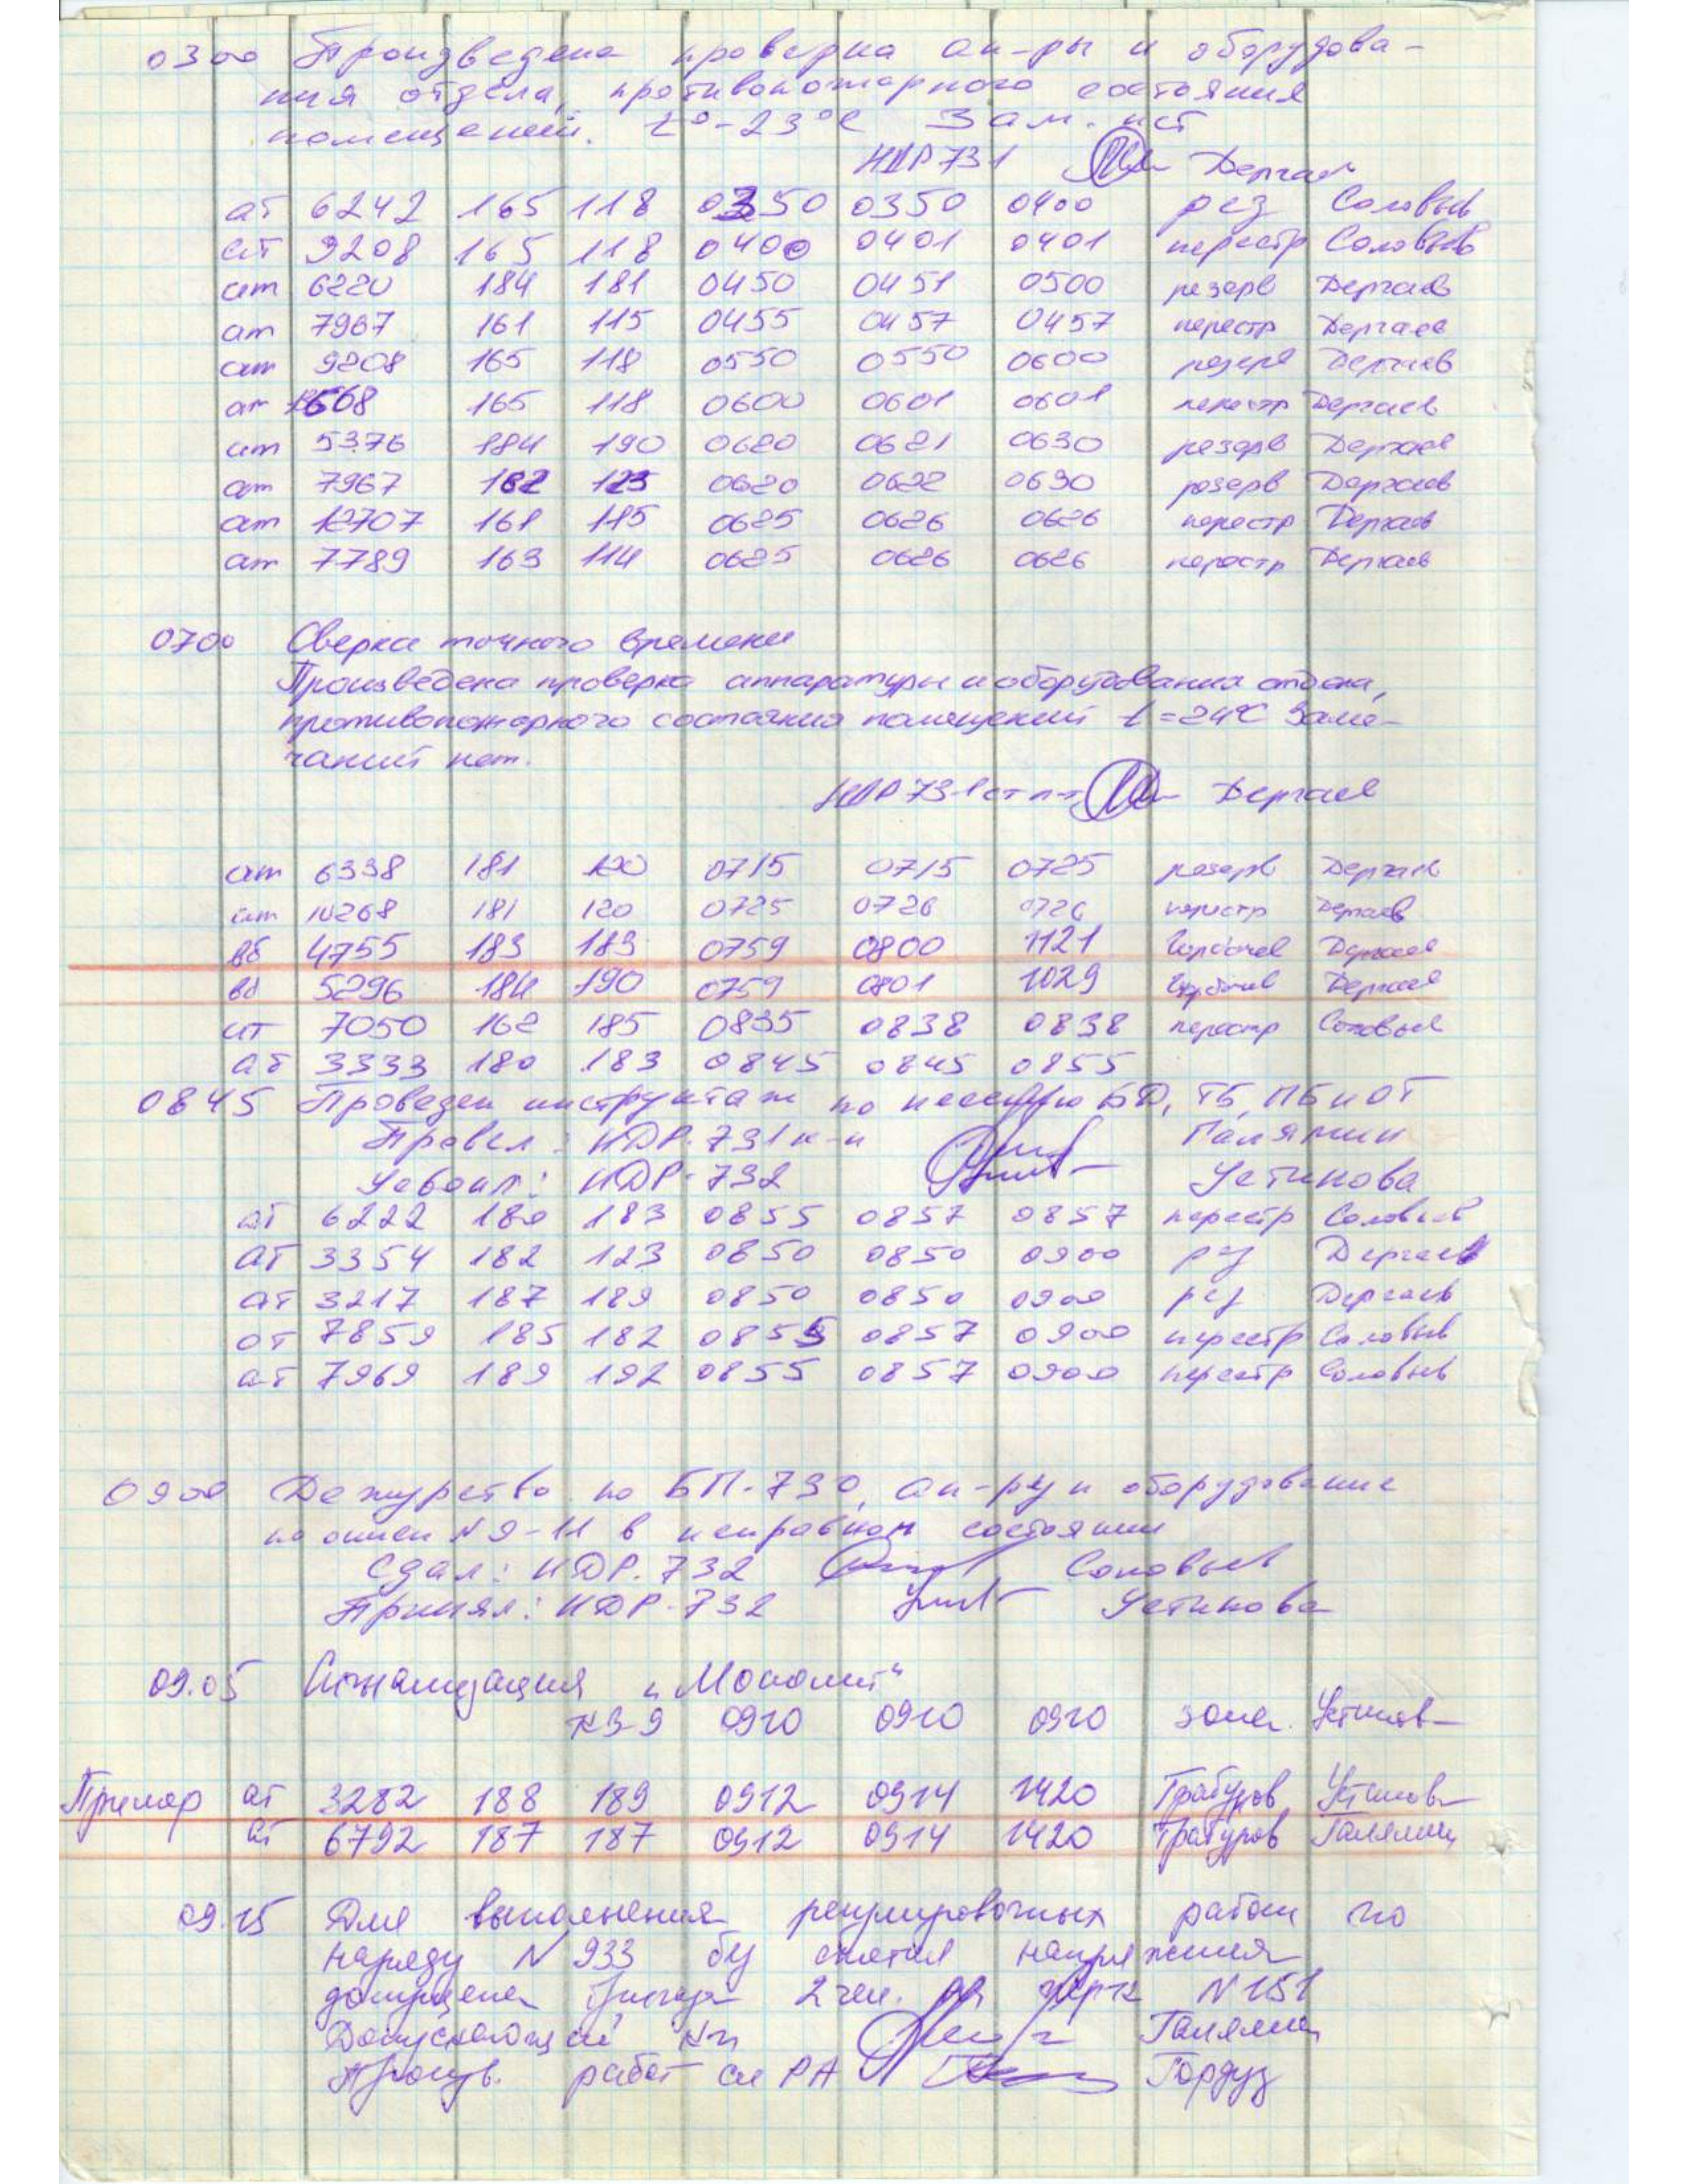 0300 Произведена проверка ап-ры и оборудова-
ния отдела, противопожарного состояния
помещений. t°-23°С Зам. нет
НДР 731 Дергаев
ат 6242 165 118 0350 0350 0400 рез Соловьев
ат 9208 165 118 0400 0401 0401 перестр Соловьев
ат 6220 184 181 0450 0451 0500 резерв Дергаев
ат 7967 161 115 0455 0457 0457 перестр Дергаев
ат 9208 165 118 0550 0550 0600 резерв Дергаев
ат 165 118 0600 0601 0601 перестр Дергаев
ат 5376 184 190 0620 0621 0630 резерв Дергаев
ат 7967 162 123 0620 0622 0630 резерв Дергаев
ат 12707 161 115 0625 0626 0626 перестр Дергаев
ат 7789 163 114 0625 0626 0626 перестр Дергаев
0700 Сверка точного времени
Произведена проверка аппаратуры и оборудования отдела,
противопожарного состояния помещений t=24°С Заме-
чаний нет.
НДР 731 ст л-т Дергаев
ат 6338 181 120 0715 0715 0725 резерв Дергаев
ат 10268 181 120 0725 0726 0726 перестр Дергаев
вб 4755 183 183 0759 0800 1121 Горбачев Дергаев
вб 5296 184 190 0759 0801 1029 Горбачев Дергаев
ат 7050 162 185 0835 0838 0838 перестр Соловьев
ат 3333 180 183 0845 0845 0855
0845 Проведен инструктаж по несению БД, ТБ, ПБ и ОТ
Провел: НДР-731 к-н Галямин
Усвоил: НДР-732 Устинова
ат 6222 180 183 0855 0857 0857 перестр Соловьев
ат 3354 182 123 0850 0850 0900 рез Дергаев
ат 3217 187 189 0850 0850 0900 рез Дергаев
ат 7859 185 182 0855 0857 0900 перестр Соловьев
ат 7969 189 192 0855 0857 0900 перестр Соловьев
0900 Дежурство по БП-730, ап-ру и оборудование
по описи N 9-11 в исправном состоянии
Сдал: НДР-732 Соловьев
Принял: НДР-732 Устинова
09.05 Сигнализация "Монолит"
КЗ-9 0910 0910 0910 Устинов
Пример ат 3282 188 189 0912 0914 1420 Трабуров Устинов
ат 6792 187 187 0912 0914 1420 Трабуров Галямин
09.15 Для выполнения регулировочных работ по
наряду N 933 без снятия напряжения
допущена бригада 2 чел. N 151
Допускающий к-н Галямин
Произв. работ сл РА Гордуз